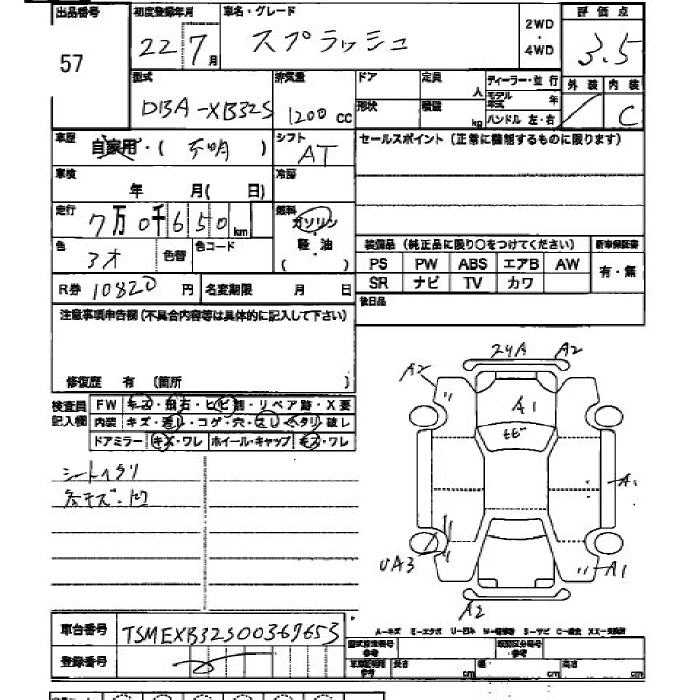 出品番号 初度登録年月 車名・グレード 評価点
57 22 7月 スプラッシュ 2WD・4WD 3.5
外装 内装 C
型式 排気量 ドア 定員 人 ディーラー・並行
DBA-XB32S 1200cc 形状 積載 kg モデル年式 年 ハンドル 左・右
車歴 自家用・(不明) シフト AT セールスポイント(正常に機能するものに限ります)
車検 年 月(日) 冷房
走行 7万0千650km 燃料 ガソリン・軽油( )
色 アオ 色替 色コード 装備品(純正品に限り○をつけてください) 新車保証書
PS PW ABS エアB AW 有・無
SR ナビ TV カワ
R券 10820円 名変期限 月 日 後日品
注意事項申告欄(不具合内容等は具体的に記入して下さい)
修復歴 有 (箇所 )
検査員記入欄 FW キズ・飛石・ヒビ割・リペア跡・X要
内装 キズ・汚レ・コゲ・穴・スレ・ヘタリ・破レ
ドアミラー キズ・ワレ ホイール・キャップ キズ・ワレ
シートヘタリ
各キズ・凹
A2 24A A2
A1
トビ
A1
UA3 A1
A2
車台番号 TSMEXB32S00367653
A-キズ E-エクボ U-凹ミ W-補修跡 S-サビ C-腐食 X,XX-交換済
登録番号
型式指定番号 参考 類別区分番号・参考
長さ cm 幅 cm 高さ cm